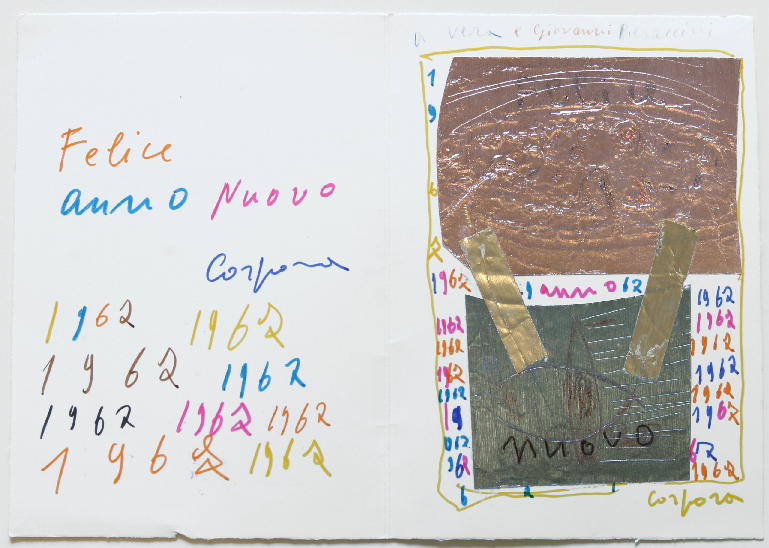 Felice
anno Nuovo
Corpora
1962 1962
1962 1962
1962 1962 1962
1962 1962
a Vera e Giovanni Pieraccini
1
9
6
2
Felice
1962 anno 62 1962
1962 1962
1962 1962
1962 1962
1962 1962
19 1962
62 62
962 1962
nuovo
6 2 1
Corpora